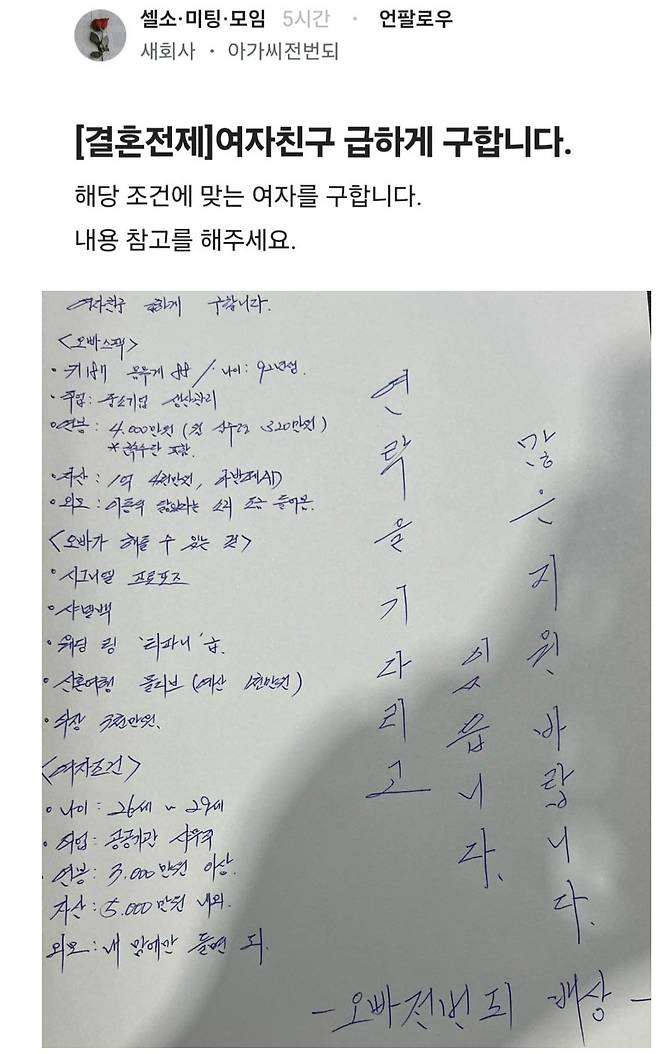 셀소·미팅·모임 5시간 · 언팔로우
새회사 · 아가씨전번되
[결혼전제]여자친구 급하게 구합니다.
해당 조건에 맞는 여자를 구합니다.
내용 참고를 해주세요.
여자친구 급하게 구합니다.
<오빠스펙>
· 키 몸무게 / 나이: 92년생.
· 직업: 중소기업 생산관리
· 연봉: 4,000만원 (월 실수령 320만원)
* 특수수당 포함.
· 자산: 1억 4천만원,
· 외모: 이동욱 닮았다는 소리 조금 들어봄.
<오빠가 해줄 수 있는 것>
· 시그니엘 프로포즈
· 샤넬백
· 웨딩 링 '티파니'급.
· 신혼여행 몰디브 (예산 1천만원)
· 천만원.
<여자조건>
· 나이: 26세 ~ 29세
· 직업: 공공기관 사무직
· 연봉: 3,000만원 이상.
자산: 5,000만원 내외.
외모: 내 맘에만 들면 되.
연락을 기다리고
있읍니다.
많은 지원 바랍니다.
- 오빠전번되 배상 -